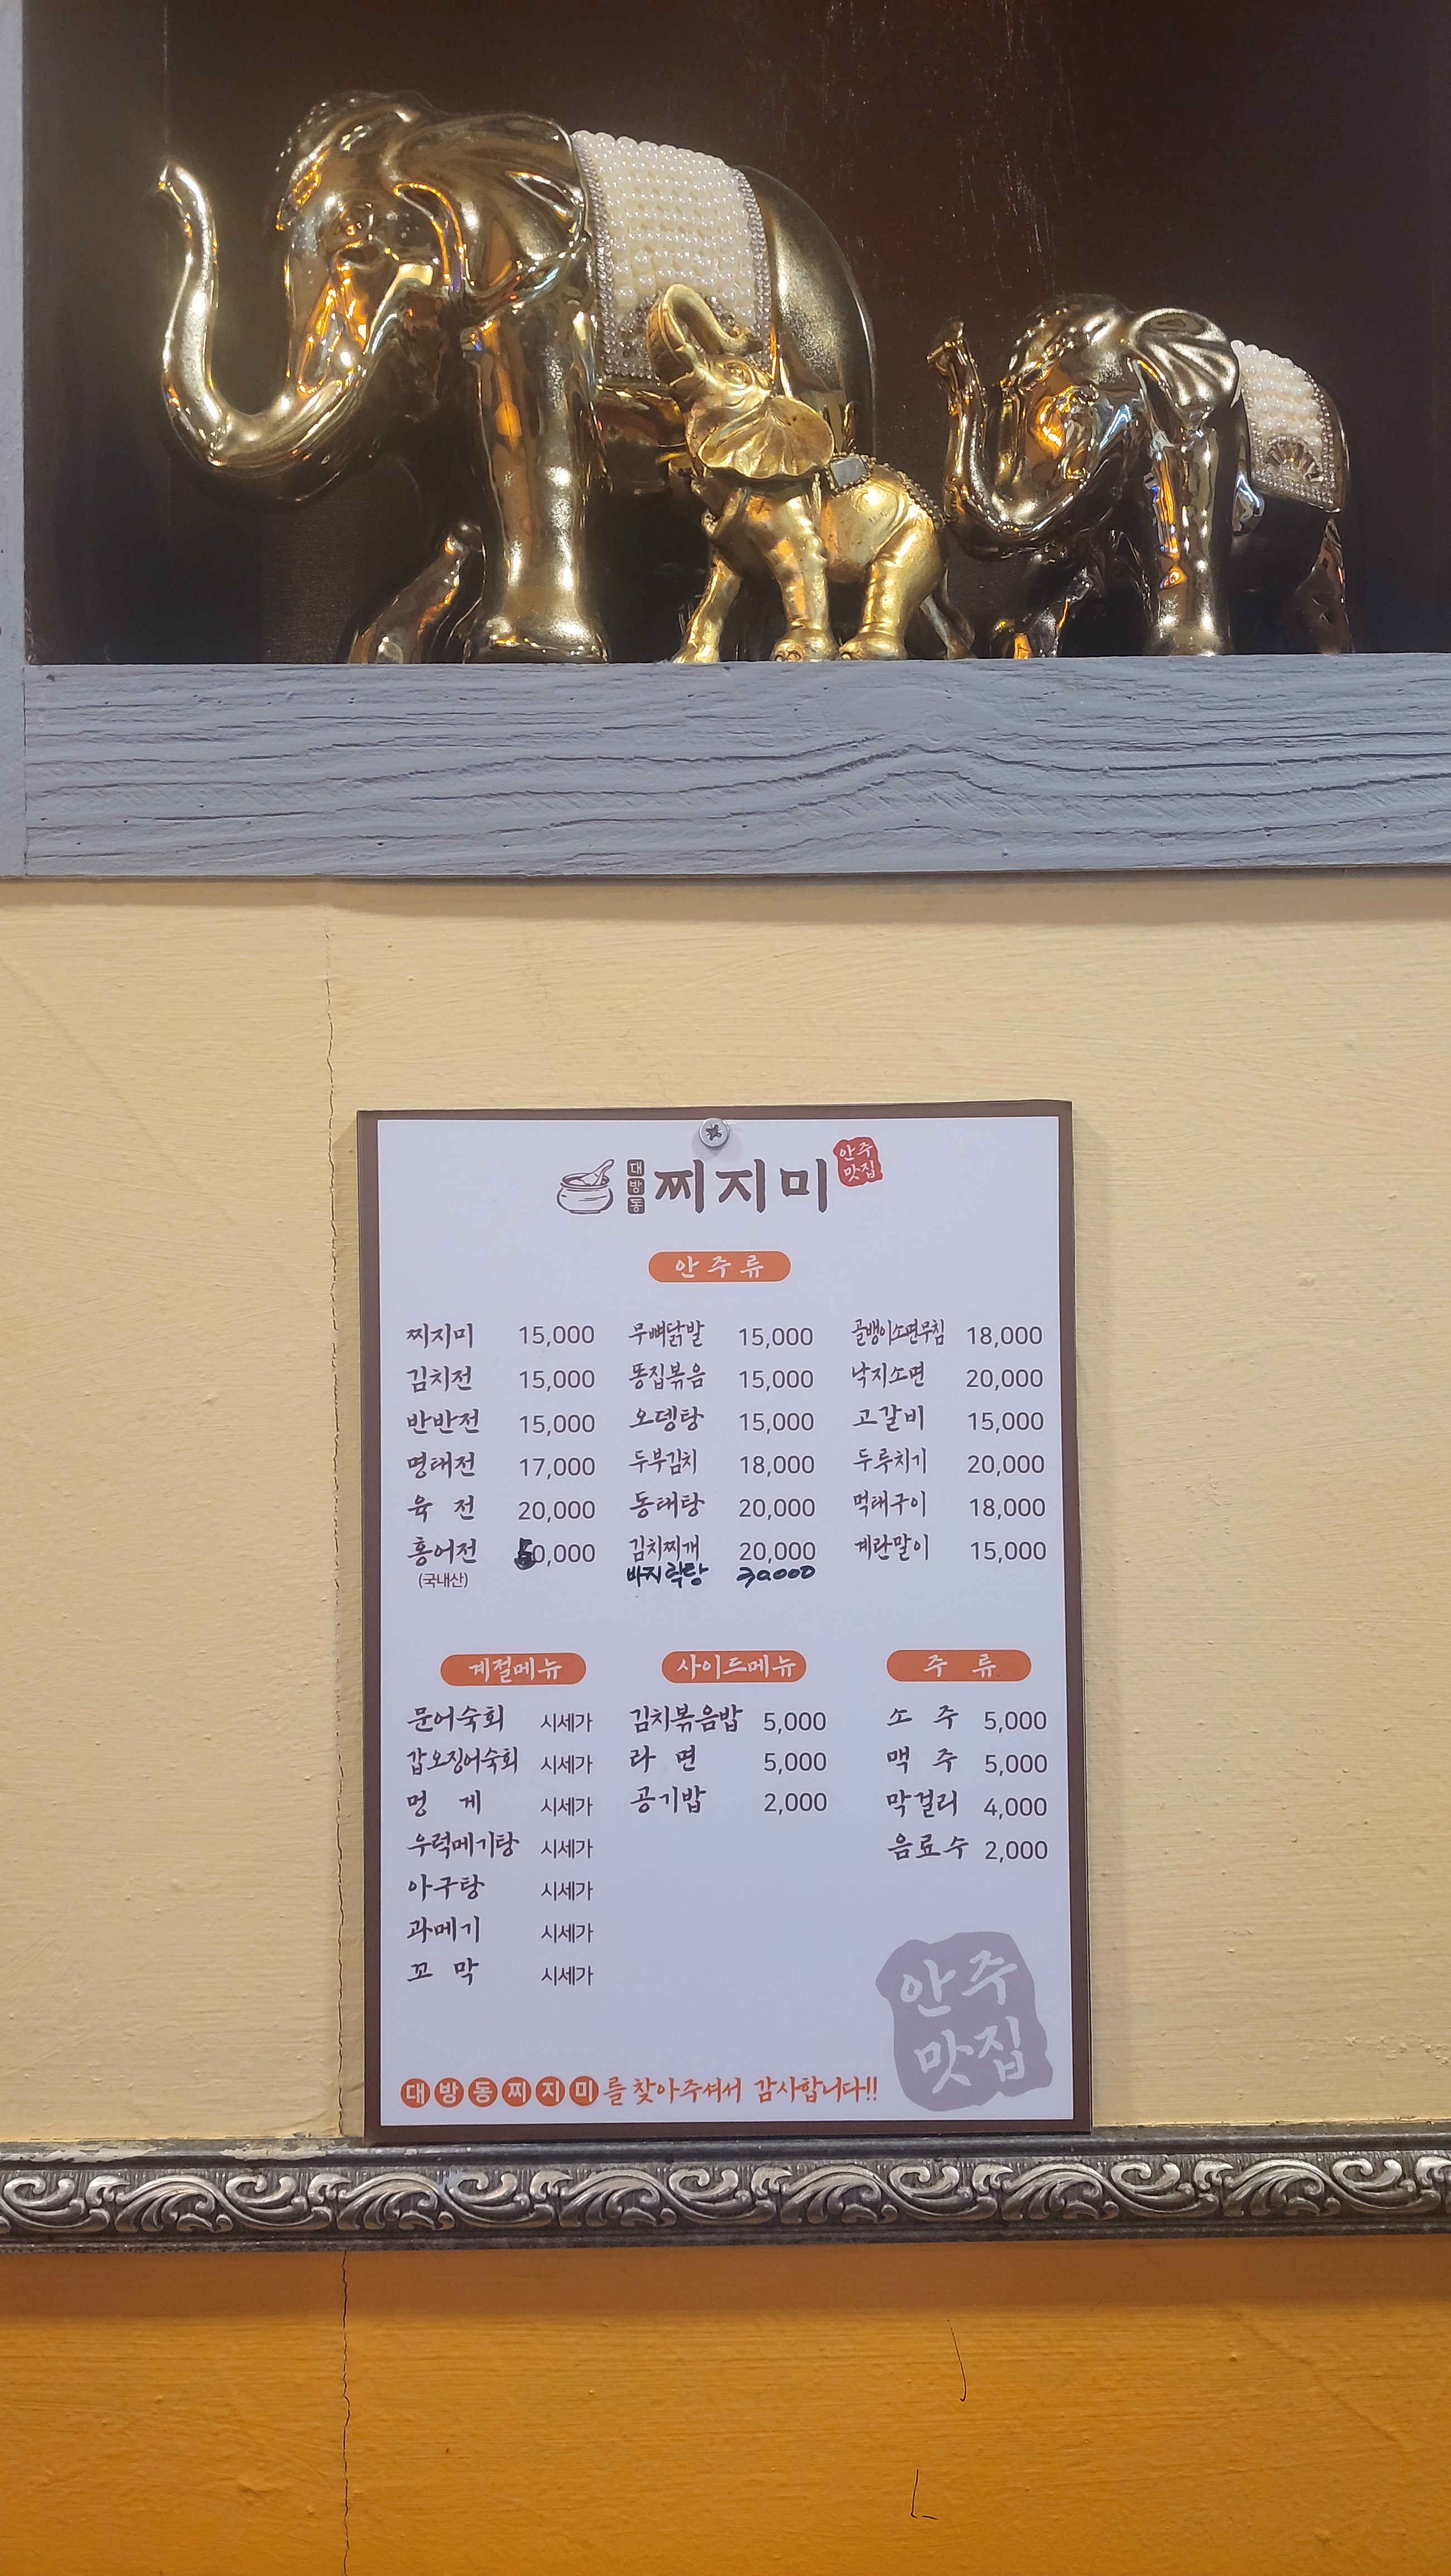 대방동 찌지미 안주맛집
안주류
찌지미 15,000 무뼈닭발 15,000 골뱅이소면무침 18,000
김치전 15,000 똥집볶음 15,000 낙지소면 20,000
반반전 15,000 오뎅탕 15,000 고갈비 15,000
명태전 17,000 두부김치 18,000 두루치기 20,000
육 전 20,000 동태탕 20,000 먹태구이 18,000
홍어전 50,000 김치찌개 20,000 계란말이 15,000
(국내산) 바지락탕 30000
계절메뉴 사이드메뉴 주 류
문어숙회 시세가 김치볶음밥 5,000 소 주 5,000
갑오징어숙회 시세가 라 면 5,000 맥 주 5,000
멍 게 시세가 공기밥 2,000 막걸리 4,000
우럭메기탕 시세가 음료수 2,000
아구탕 시세가
과메기 시세가
꼬 막 시세가
안주
맛집
대방동찌지미를 찾아주셔서 감사합니다!!